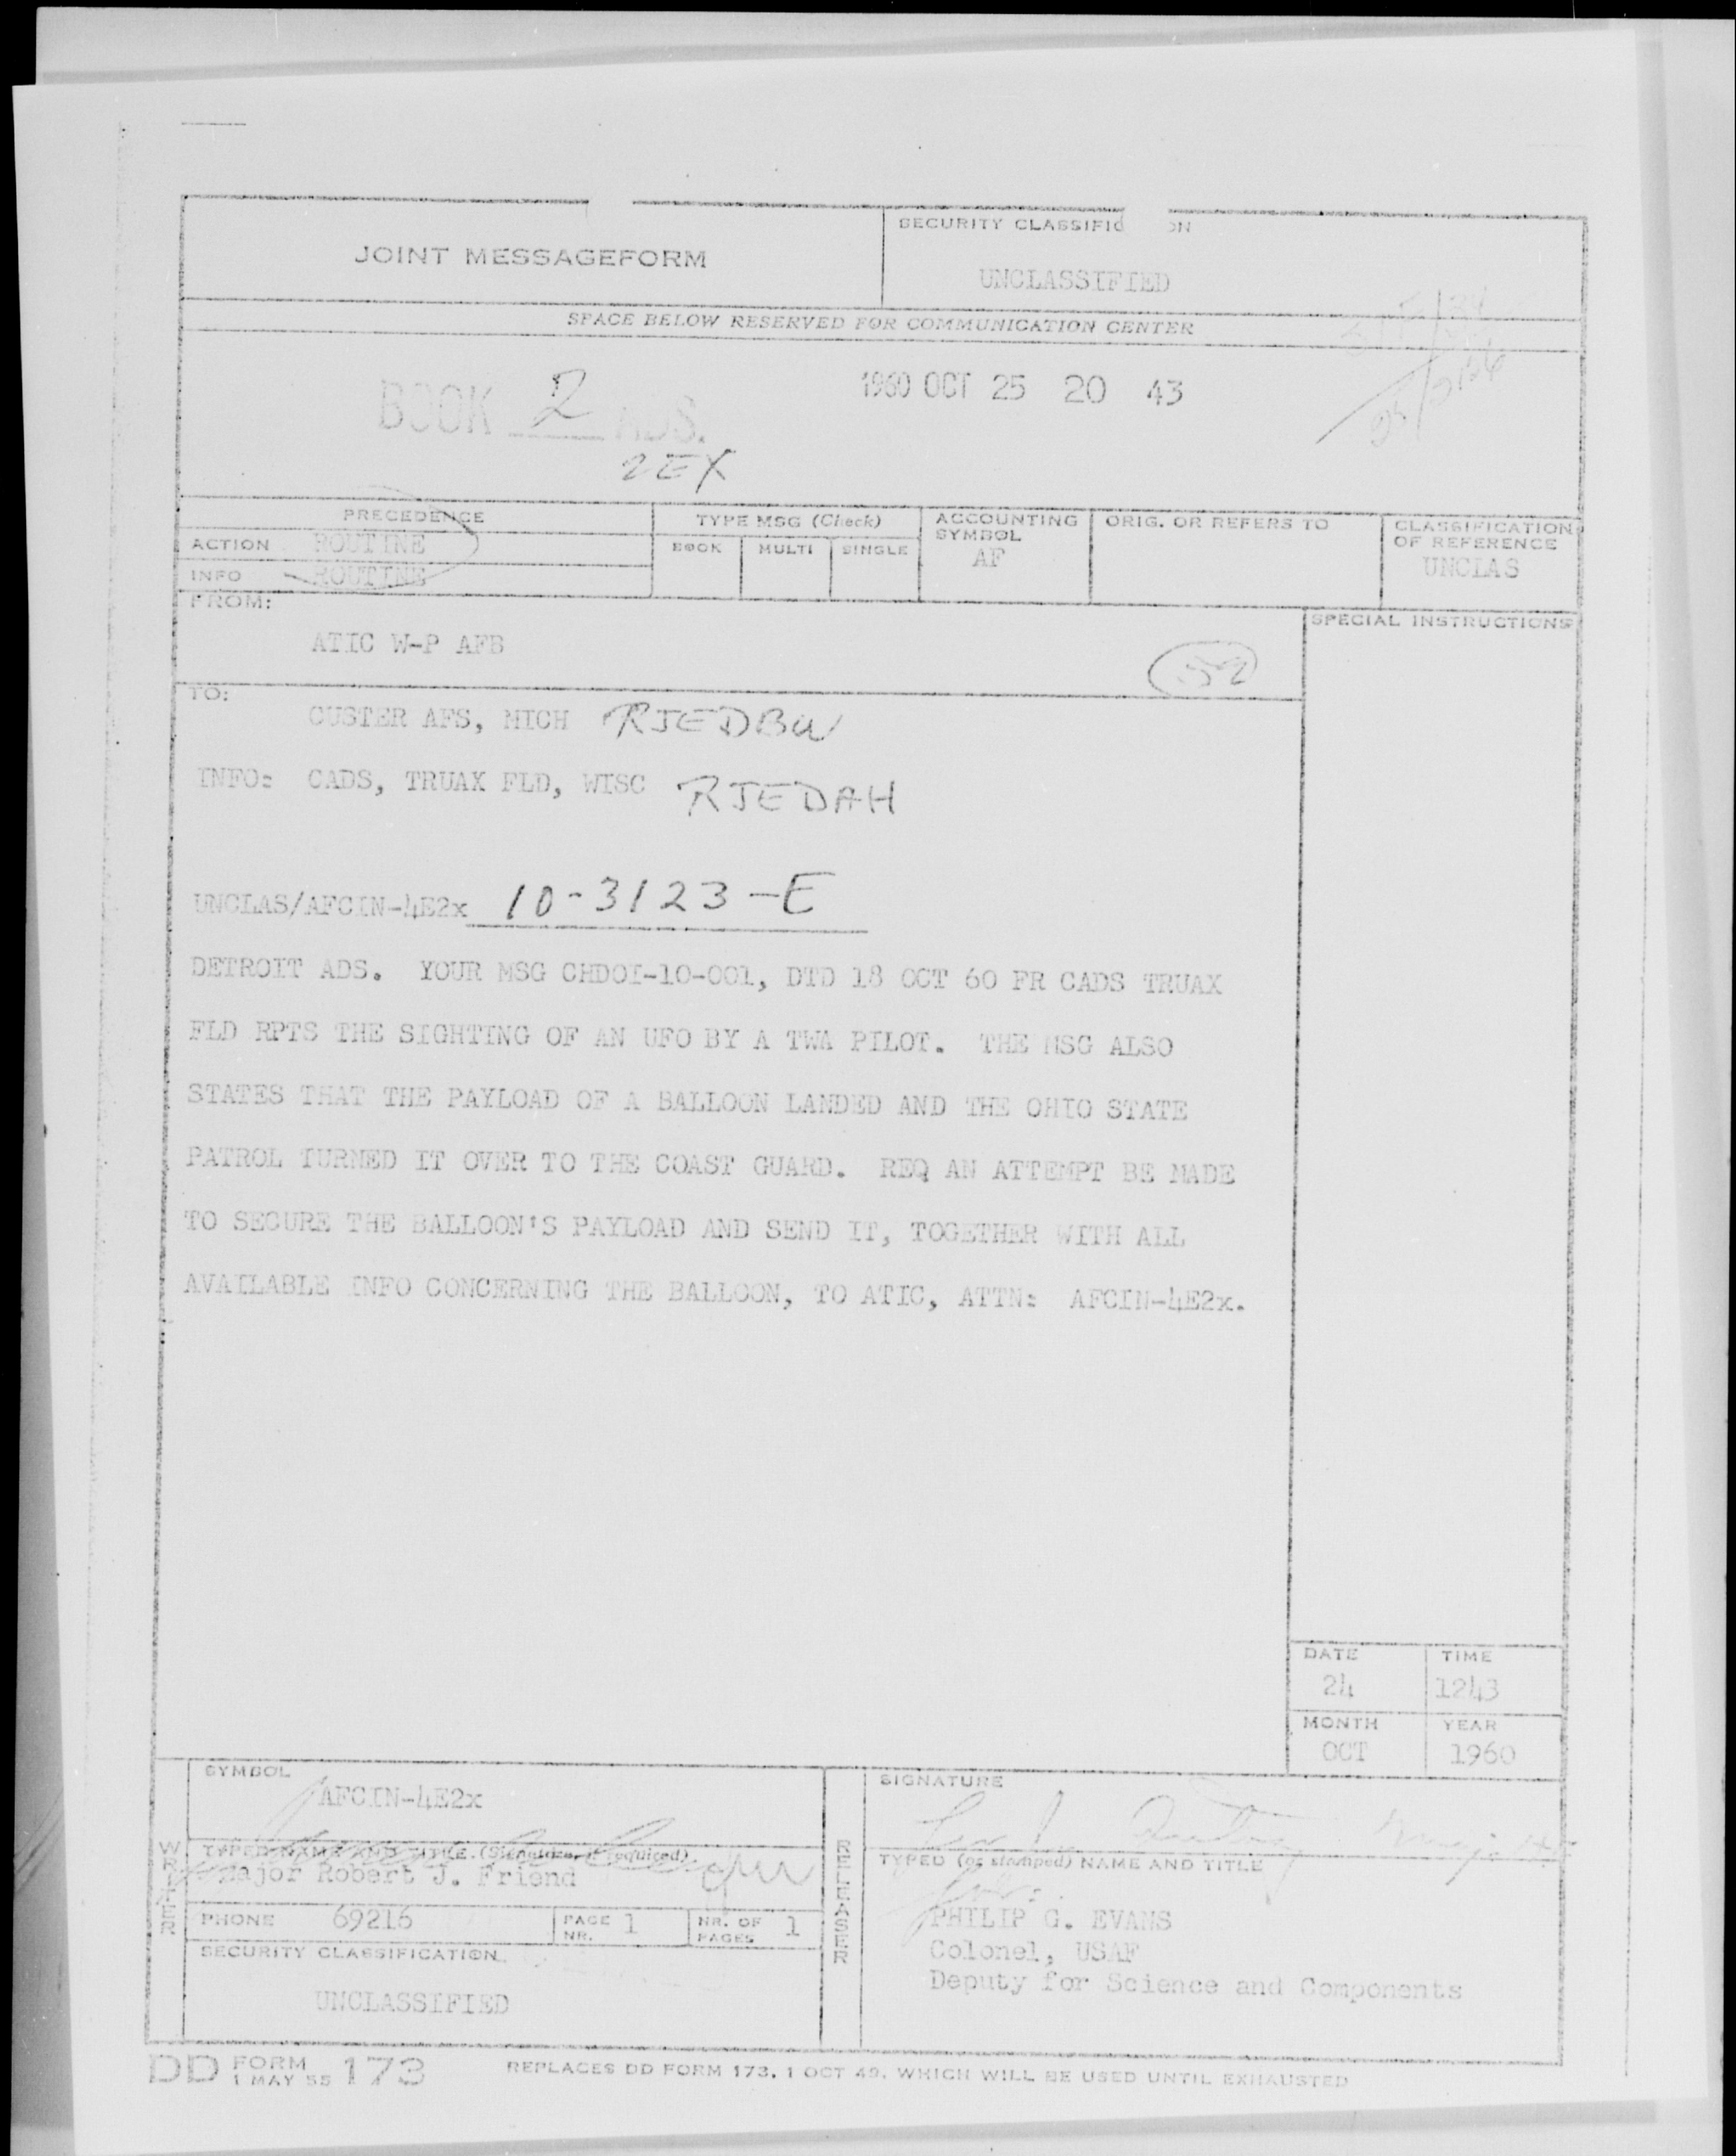 JOINT MESSAGEFORM
SECURITY CLASSIFIC ON
UNCLASSIFIED
SPACE BELOW RESERVED FOR COMMUNICATION CENTER
BOOK 2 ADS.
1960 OCT 25 20 43
ZEX
PRECEDENCE
TYPE MSG (Check)
ACCOUNTING SYMBOL
ORIG. OR REFERS TO
CLASSIFICATION OF REFERENCE
ACTION ROUTINE
BOOK MULTI SINGLE
AF
UNCLAS
INFO ROUTINE
FROM:
SPECIAL INSTRUCTIONS
ATIC W-P AFB
52
TO:
CUSTER AFS, MICH RJEDBW
INFO: CADS, TRUAX FLD, WISC RJEDAH
UNCLAS/AFCIN-4E2x 10-3123-E
DETROIT ADS. YOUR MSG CHDOI-10-001, DTD 18 OCT 60 FR CADS TRUAX
FLD RPTS THE SIGHTING OF AN UFO BY A TWA PILOT. THE MSG ALSO
STATES THAT THE PAYLOAD OF A BALLOON LANDED AND THE OHIO STATE
PATROL TURNED IT OVER TO THE COAST GUARD. REQ AN ATTEMPT BE MADE
TO SECURE THE BALLOON'S PAYLOAD AND SEND IT, TOGETHER WITH ALL
AVAILABLE INFO CONCERNING THE BALLOON, TO ATIC, ATTN: AFCIN-4E2x.
DATE TIME
24 1243
MONTH YEAR
OCT 1960
WRITER
SYMBOL
AFCIN-4E2x
TYPED NAME AND TITLE (Signature, if required)
Major Robert J. Friend
PHONE 69216
PAGE NR. 1
NR. OF PAGES 1
SECURITY CLASSIFICATION
UNCLASSIFIED
RELEASER
SIGNATURE
TYPED (or stamped) NAME AND TITLE
for:
PHILIP G. EVANS
Colonel, USAF
Deputy for Science and Components
DD FORM 1 MAY 55 173
REPLACES DD FORM 173, 1 OCT 49, WHICH WILL BE USED UNTIL EXHAUSTED